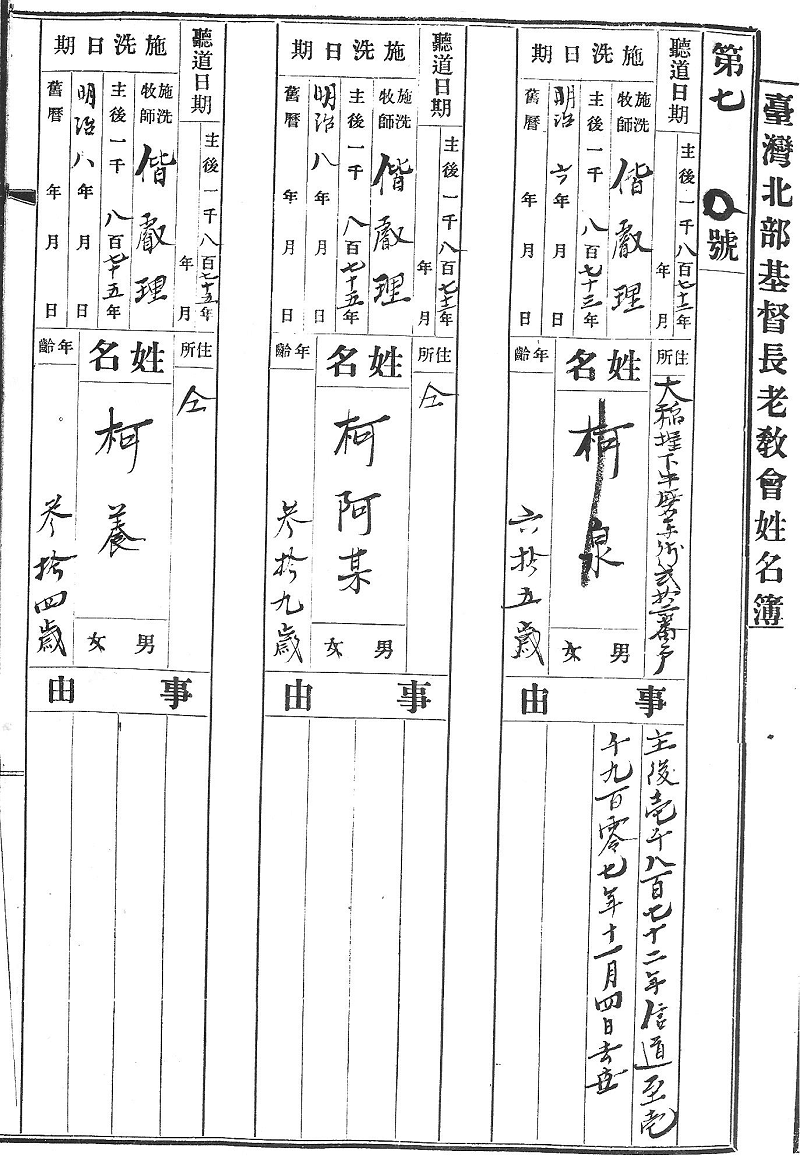 臺灣北部基督長老教會姓名簿
第七〇號
聽道日期
主後一千八百七十二年
年 月
施洗日期
施洗牧師 偕叡理
主後一千八百七十三年
明治六年 月 日
舊曆 年 月 日
住所
大稻埕下牛磨車街貳拾番戶
姓名
柯泉
男 女
年齡
六拾五歲
事由
主後壹千八百七十二年信道至壱
千九百零七年十一月四日去世
聽道日期
主後一千八百七十三年
年 月
施洗日期
施洗牧師 偕叡理
主後一千八百七十五年
明治八年 月 日
舊曆 年 月 日
住所
仝
姓名
柯阿某
男 女
年齡
參拾九歲
事由
聽道日期
主後一千八百七十五年
年 月
施洗日期
施洗牧師 偕叡理
主後一千八百七十五年
明治八年 月 日
舊曆 年 月 日
住所
仝
姓名
柯養
男 女
年齡
參拾四歲
事由